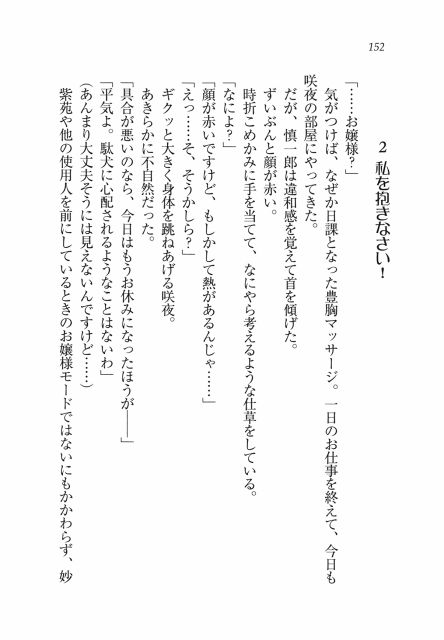 152
2 私を抱きなさい！
「……お嬢様？」
気がつけば、なぜか日課となった豊胸マッサージ。一日のお仕事を終えて、今日も
咲夜の部屋にやってきた。
だが、慎一郎は違和感を覚えて首を傾げた。
ずいぶんと顔が赤い。
時折こめかみに手を当てて、なにやら考えるような仕草をしている。
「なによ？」
「顔が赤いですけど、もしかして熱があるんじゃ……」
「えっ……そ、そうかしら？」
ギクッと大きく身体を跳ねあげる咲夜。
あきらかに不自然だった。
「具合が悪いのなら、今日はもうお休みになったほうが――」
「平気よ。駄犬に心配されるようなことはないわ」
（あんまり大丈夫そうには見えないんですけど……）
紫苑や他の使用人を前にしているときのお嬢様モードではないにもかかわらず、妙